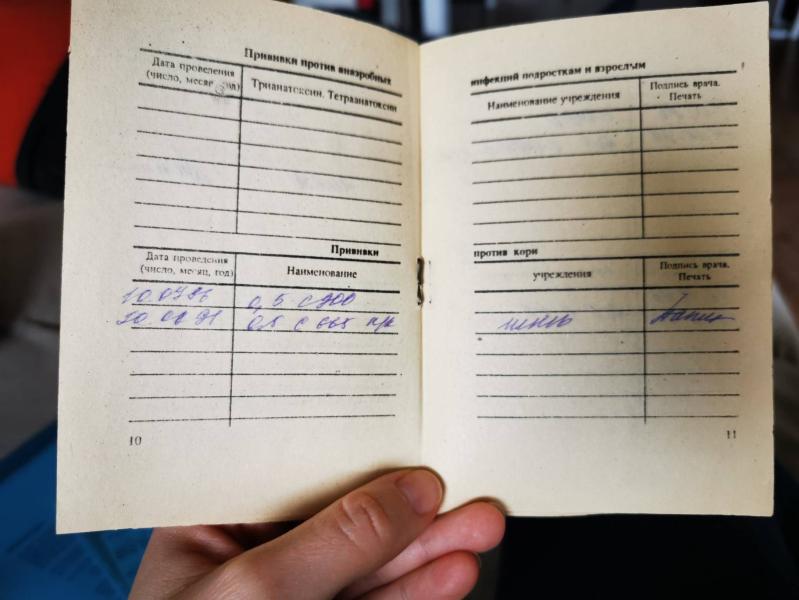 Прививки против анаэробных
Дата проведения
(число, месяц, год)
Трианатоксин. Тетраанатоксин
Прививки
Дата проведения
(число, месяц, год)
Наименование
0,5 с
0,5 с 665 п/к
10
инфекций подросткам и взрослым
Наименование учреждения
Подпись врача.
Печать
против кори
учреждения
Подпись врача.
Печать
11